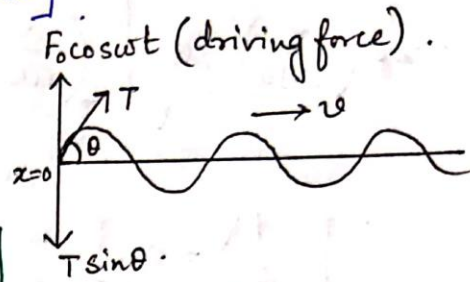 F₀coswt (driving force).
T
θ
v
x=0
T sinθ.